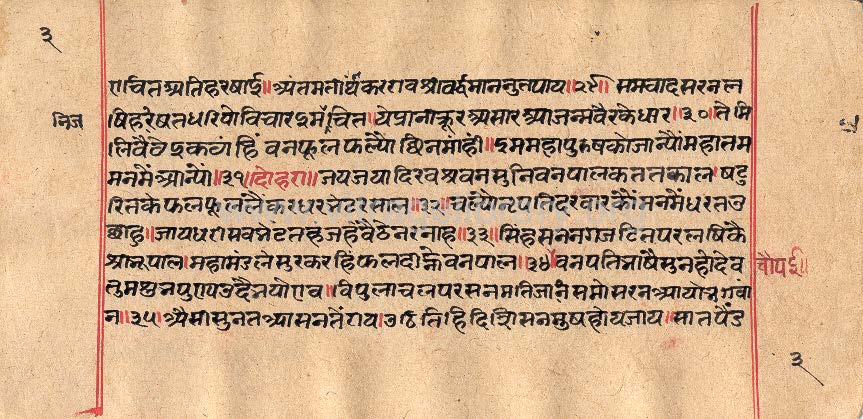 ३
राचित अतिहरषाई॥ अंतमतीर्थकरराव श्रीवर्द्धमाननुतपाय॥२९॥ समवादसरनल
निज
षिहरषतधरियो विचार इम चित॥ ये प्रानी क्रूर अपार आजन्म वैर के धार॥३०॥ ते मि
लि बैठे इकठांहिं वनफूल फल्यौ छिनमांही॥ इम महापुरुष को जान्यौं महातम
मनमें आन्यों॥३१॥ दोहरा॥ जयजयादिरव श्रवन सुनि वनपालक ततकाल। षट्ऋ
रितके फलफूल लै कर धर भेट रसाल॥३२॥ चल्यौ नृपति दरबार कौं मनमें धरत उ
छाह॥ जाय धरी सब भेट तह जह बैठे नरनाह॥३३॥ सिंहासन नगजटित पर लषिकै
चौपई॥
श्रीभूपाल। महामंडलेसुर करहि फल दीने वनपाल॥३४॥ वनपति भाषै सुन हो देव
तुम पुन्न पुराय उदै भयो एव॥ विपुलाचल पर सनमति जांन समोसरन आयो भगवा
न॥३५॥ ऐसी सुनत आसनतें राव। उठि तिहि दिसि सनमुष होय जाय॥ सात पैंड
३